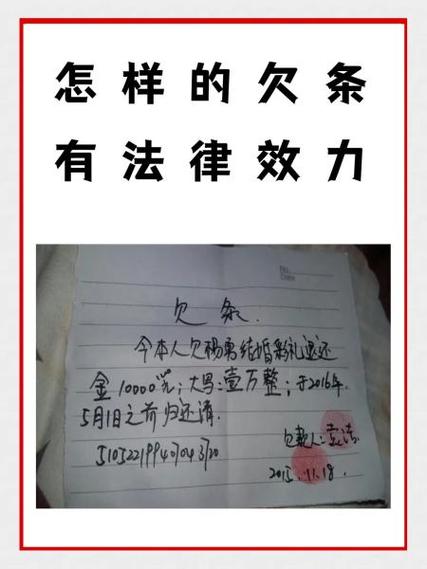 怎样的欠条
有法律效力
No.
Date
欠条.
今本人欠杨勇结婚彩礼退还
金10000元；大写：壹万整；于2016年.
5月1日之前归还清.
欠款人：
2015.11.18.